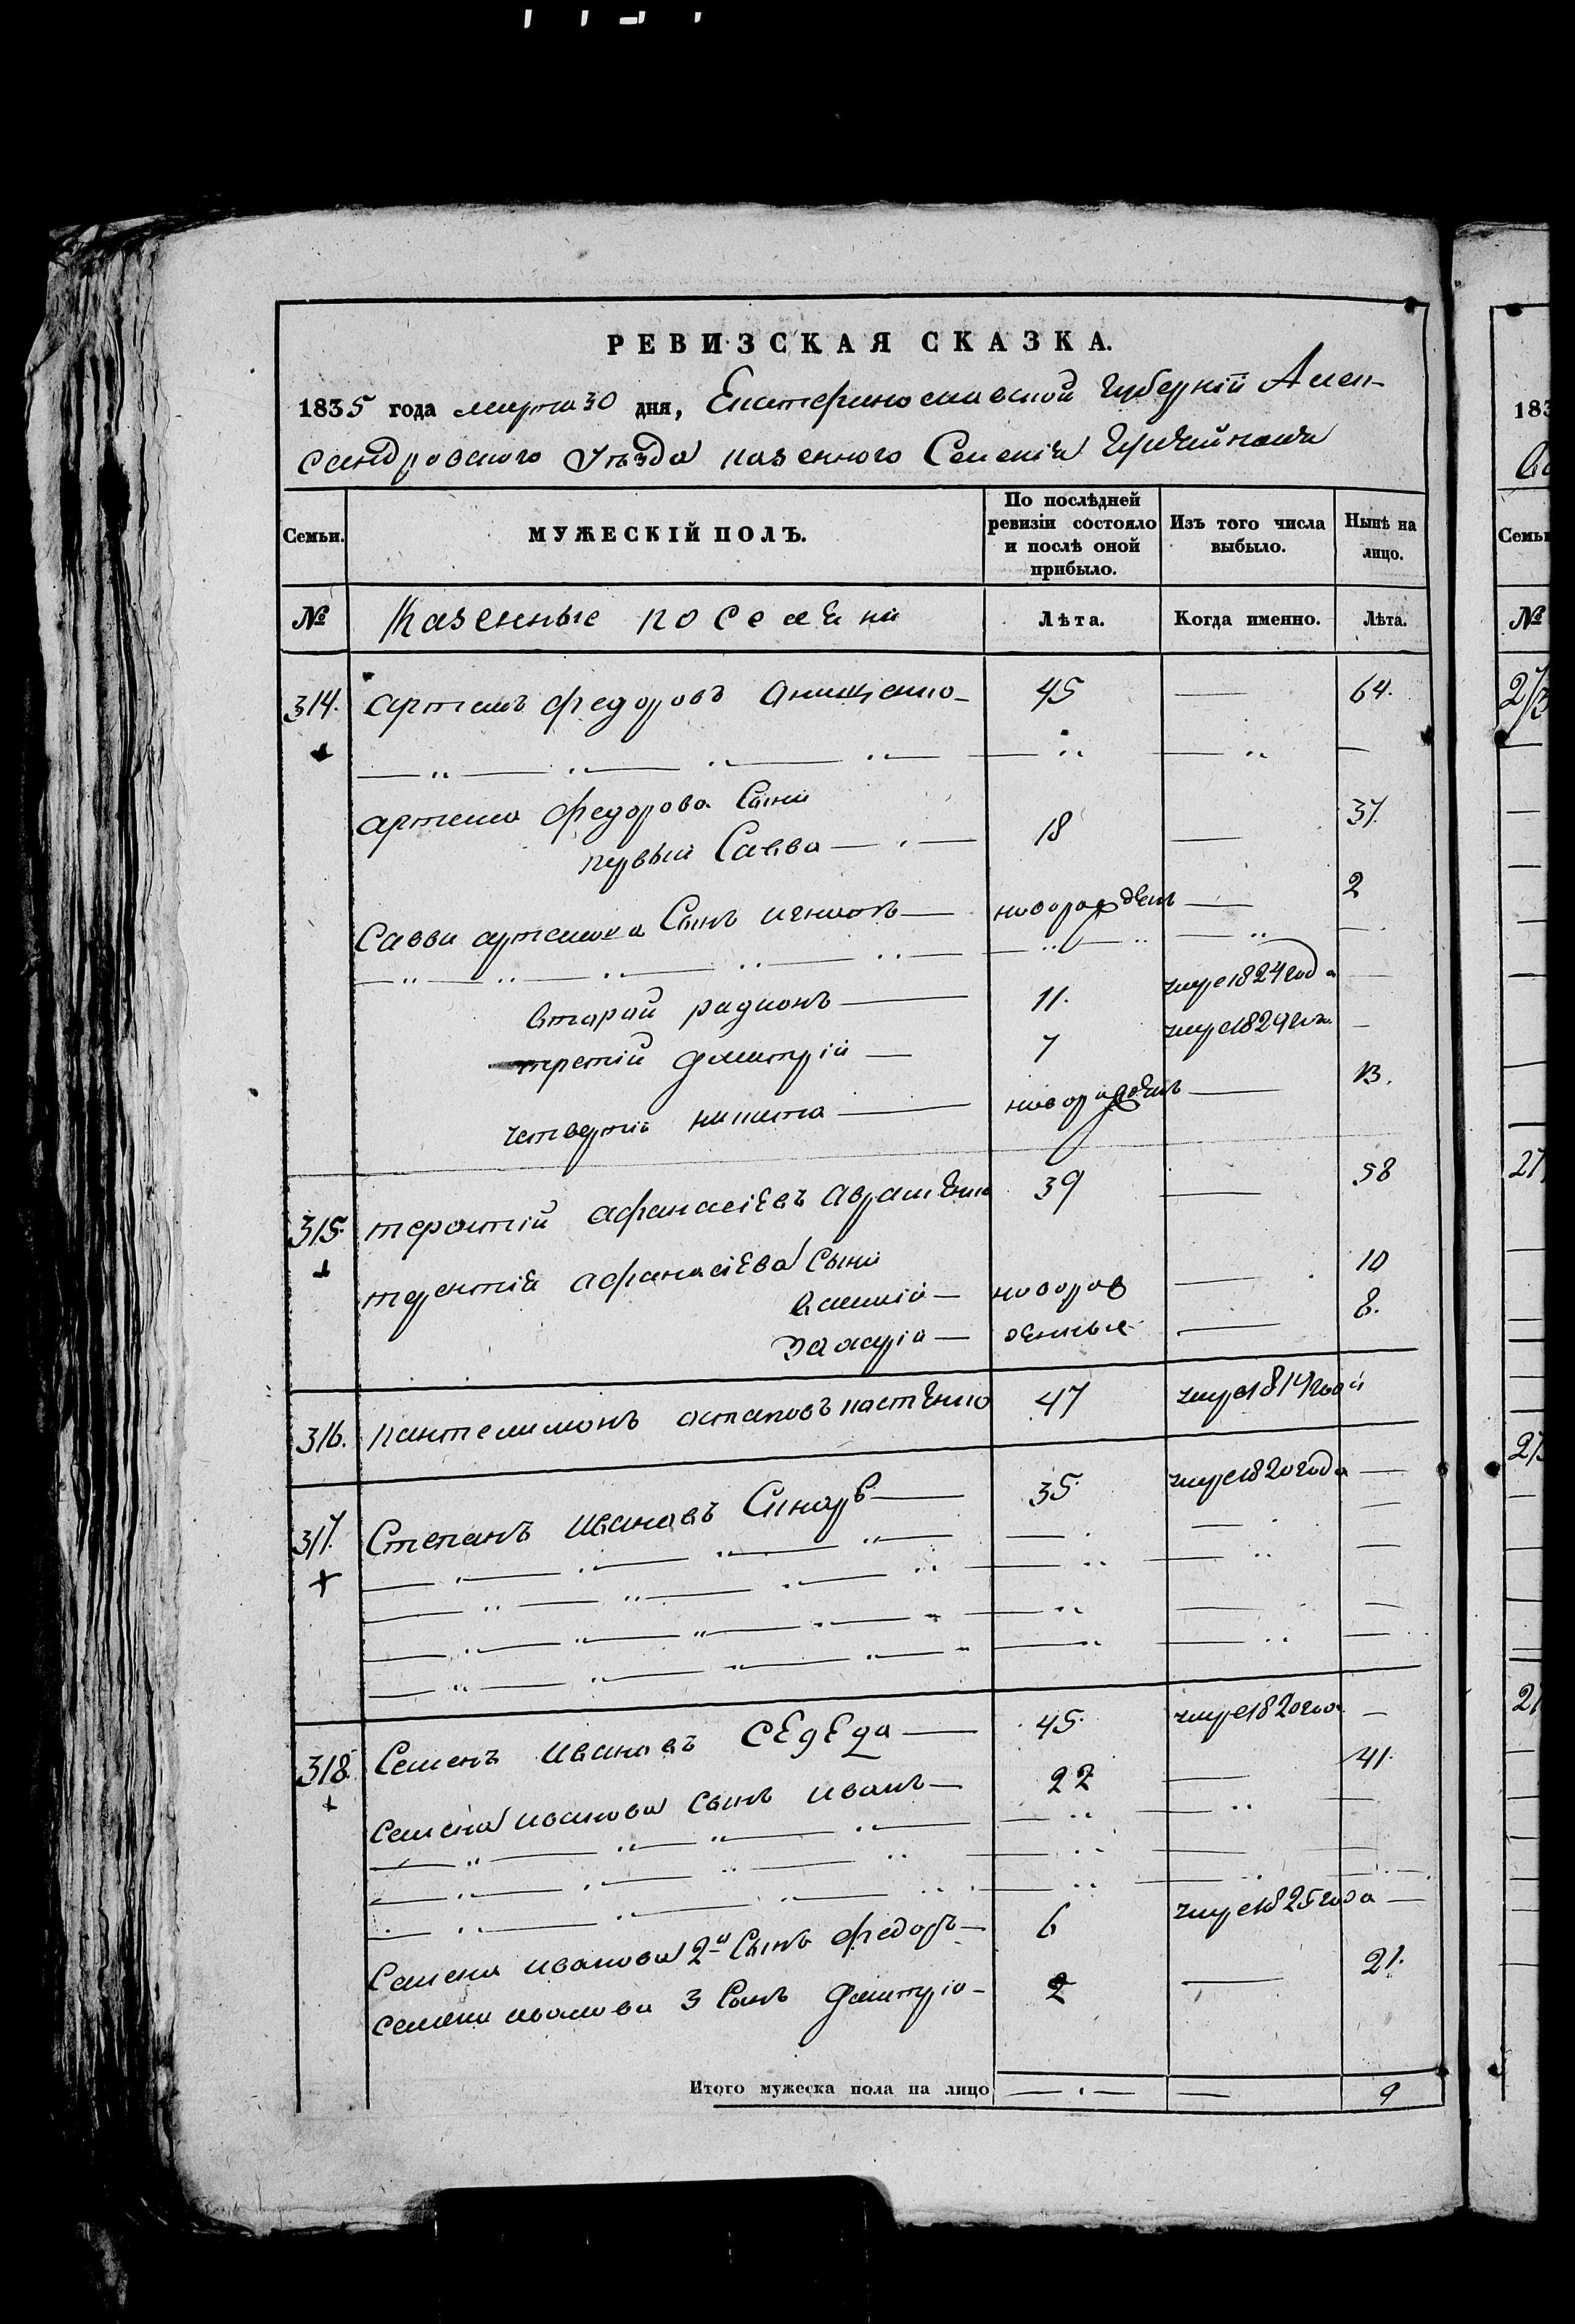 РЕВИЗСКАЯ СКАЗКА.
1835 года марта 30 дня, Екатеринославской губерніи Алек-
сандровского Уѣзда казенного Селенія
Семьи. МУЖЕСКІЙ ПОЛЪ. По послѣдней ревизіи состояло и послѣ оной прибыло. Изъ того числа выбыло. Нынѣ на лицо.
№ Казенные поселяни Лѣта. Когда именно. Лѣта.
314. артемъ федоровъ онищенко 45 — 64.
артема федорова сыни
первый Савва — 18 — 37.
Савви артемова Сынъ игнатъ — новорожденъ — 2
второй радионъ — 11. умре 1824 года —
третій дмитрій — 7 умре 1829 года —
четвертій никита — новорожденъ — 13.
315. терентій афанасіевъ 39 — 58
терентія афанасіева сыни
василій — новорож — 10
захарія — денные — 8.
316. пантелимонъ остаповъ костенко 47 умре 1814 года
317. Степанъ ивановъ 35 умре 1820 года —
318. Семенъ ивановъ СЕдЕда — 45. умре 1820 года —
семена иванова сынъ иванъ — 22 — 41.
Семена иванова 2й сынъ федоръ — 6 умре 1825 года —
семена иванова 3 сынъ дмитріо — 2 — 21.
Итого мужеска пола на лицо — — 9
183
Семьи
№